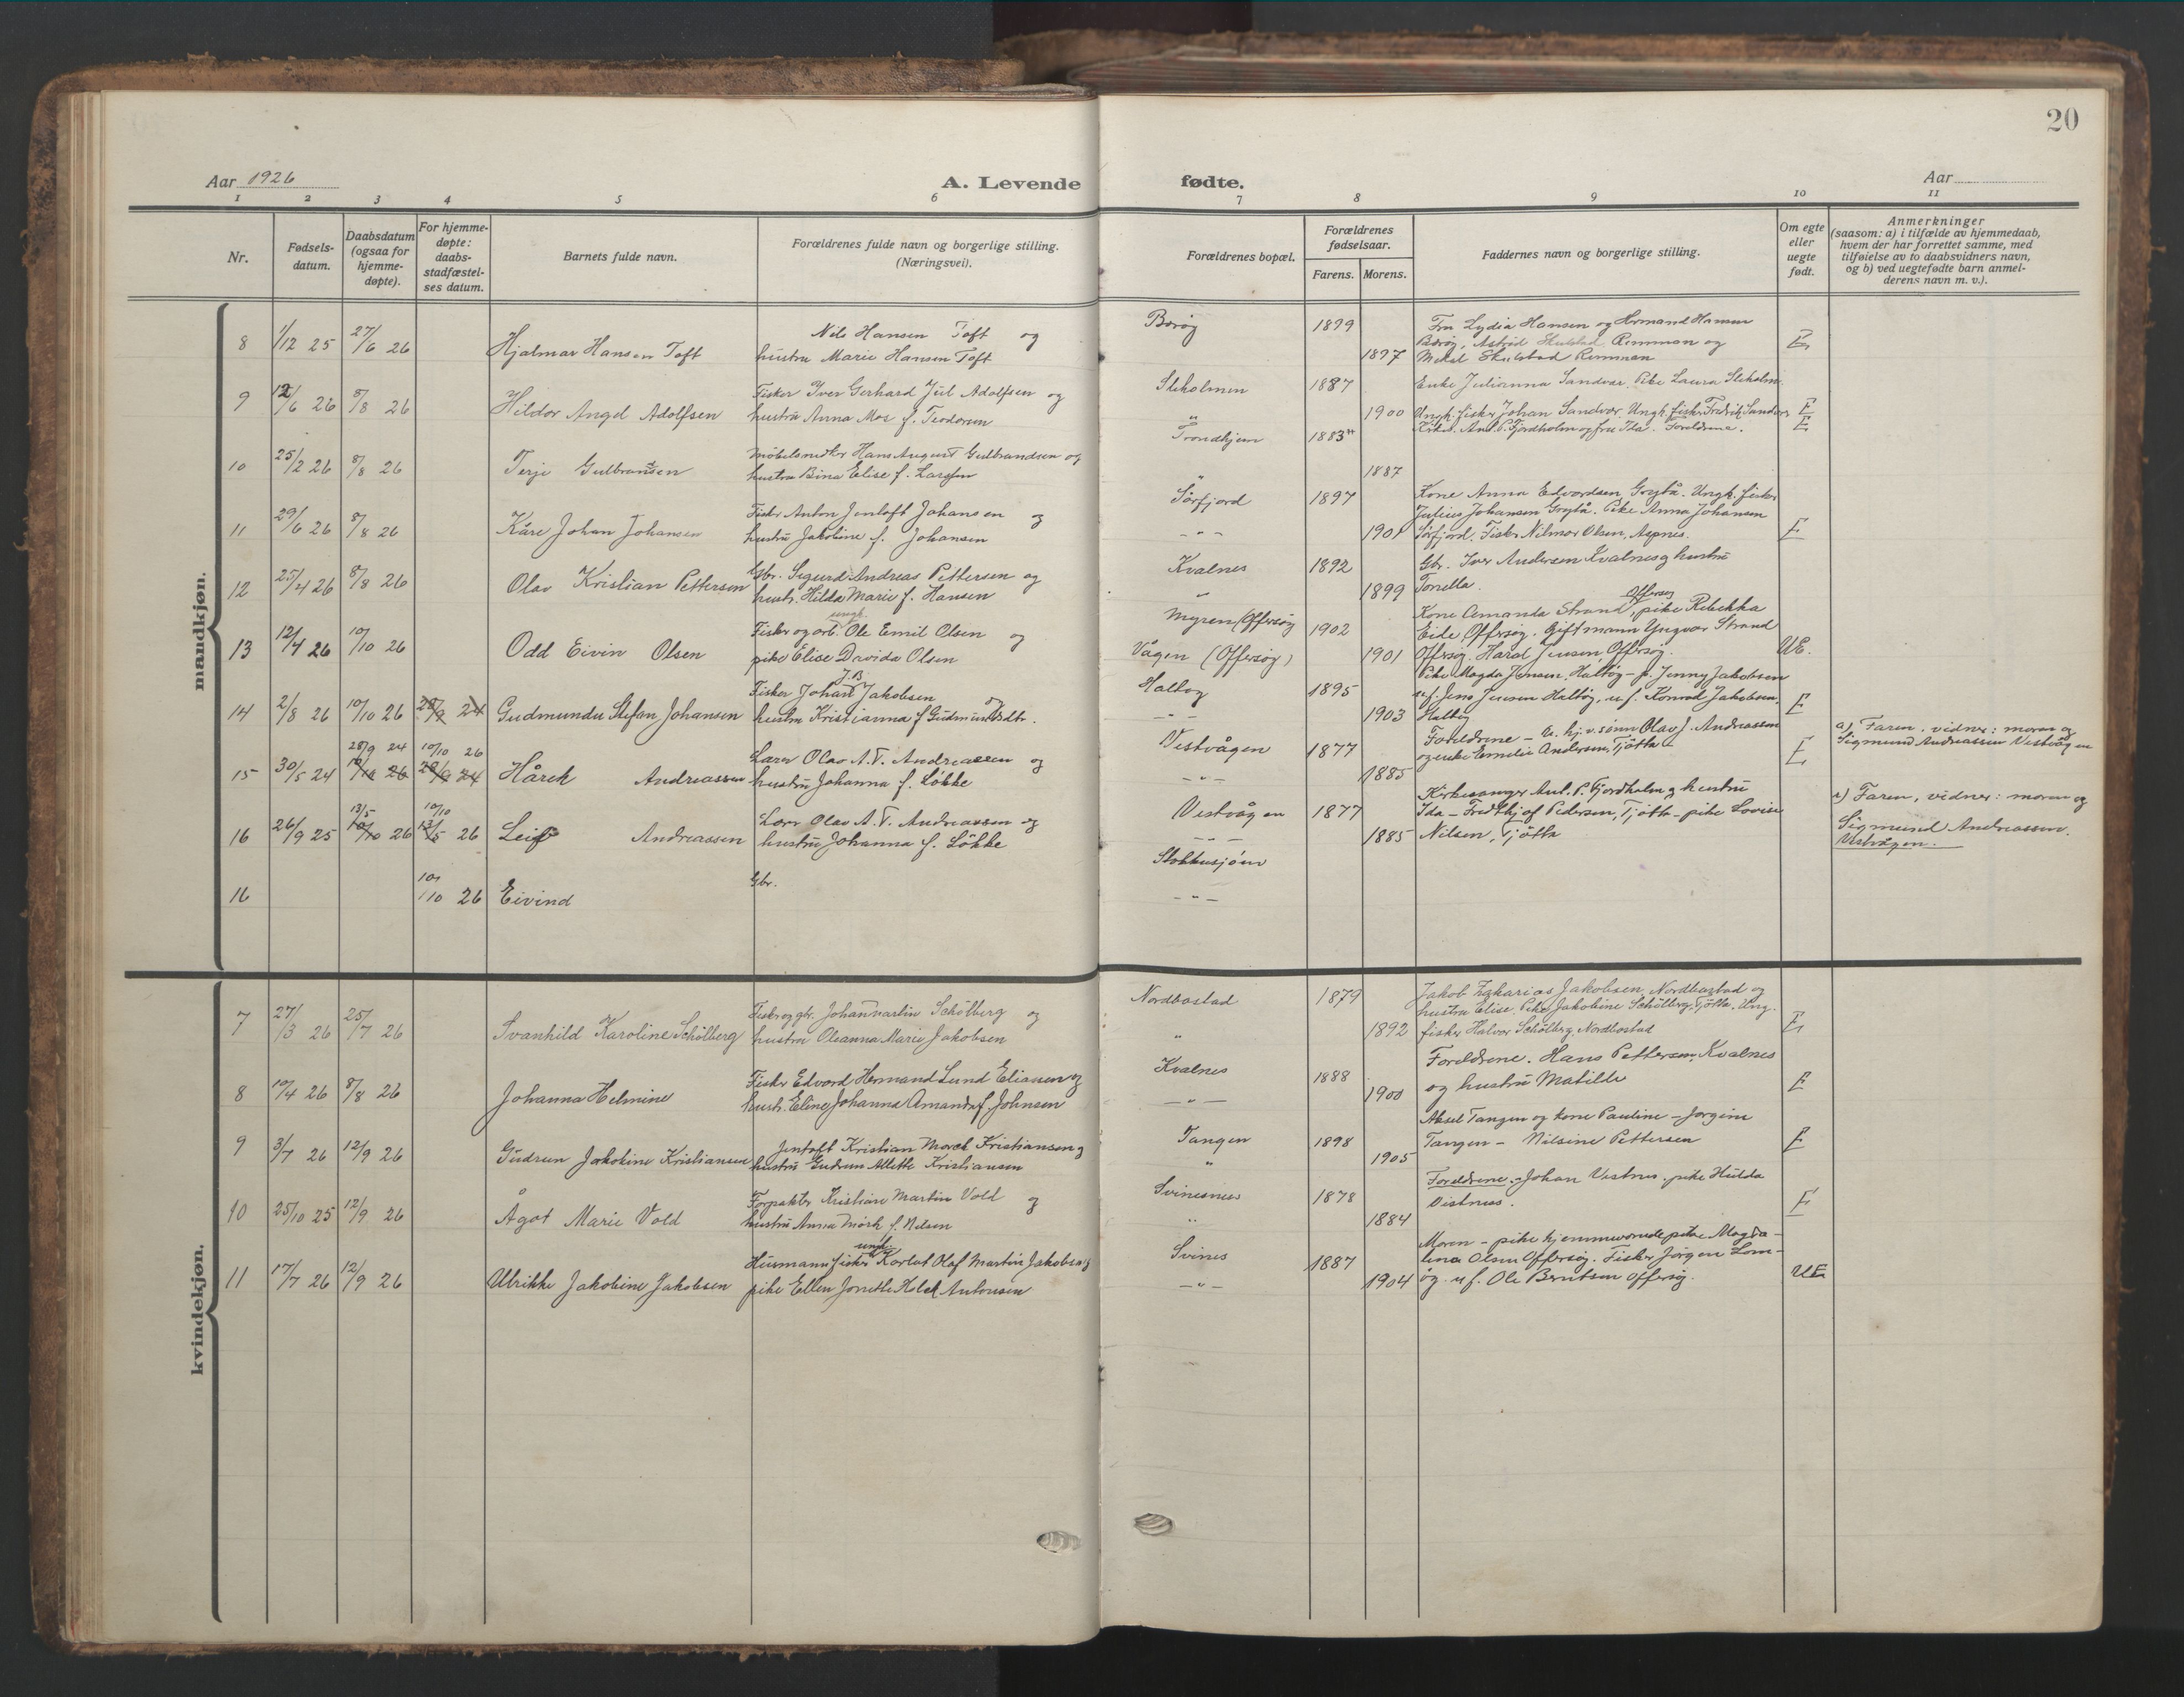 20
Aar 1926
A. Levende fødte.
Aar
1 2 3 4 5 6 7 8 9 10 11
Nr.
Fødsels-
datum.
Daabsdatum
(ogsaa for
hjemme-
døpte).
For hjemme-
døpte:
daabs-
stadfæstel-
ses datum.
Barnets fulde navn.
Forældrenes fulde navn og borgerlige stilling.
(Næringsvei).
Forældrenes bopæl.
Forældrenes
fødselsaar.
Farens. Morens.
Faddernes navn og borgerlige stilling.
Om egte
eller
uegte
født.
Anmerkninger
(saasom: a) i tilfælde av hjemmedaab,
hvem der har forrettet samme, med
tilføielse av to daabsvidners navn,
og b) ved uegtefødte barn anmel-
derens navn m. v.).
mandkjøn.
8 1/12 25 27/6 26 Hjalmar Hansen Toft
Nils Hansen Toft og
hustru Marie Hansen Toft
Børøy 1899
1897
Fru Lydia Hansen og Hermand Hansen
Børøy, Astrid Skulstad Remman og
Mikal Skulstad Remman
E
9 12/6 26 8/8 26 Hildor Angel Adolfsen
Fisker Iver Gerhard Jul Adolfsen og
hustru Anna Mos f. Teodorsen
Sleholmen 1887
" 1900
Enke Julianna Sandvær. Pike Laura Sleholm.
Ungk. fisker Johan Sandvær. Ungk. fisker Fredrik Sandvær
E
10 25/2 26 8/8 26 Terje Gulbrandsen
Møbelsnedker Hans August Gulbrandsen og
hustru Bina Elise f. Larssen
Trondhjem 1883
" 1887
Kirkes. Ant. P. Fjordholm og fru Ida. Foreldrene.
E
11 29/6 26 8/8 26 Kåre Johan Johansen
Fisker Anton Jentoft Johansen og
hustru Jakobine f. Johansen
Sørfjord 1897
- " - 1901
Kone Anna Edvardsen Grytå. Ungk. fisker
Julius Johansen Grytå. Pike Anna Johansen
Sørfjord. Fisker Nilmar Olsen, Aspnes.
E
12 25/4 26 8/8 26 Olav Kristian Pettersen
Gbr. Sigurd Andreas Pettersen og
hustr. Hilda Marie f. Hansen
Kvalnes 1892
" 1899
Gbr. Iver Andersen Kvalnes og hustru
Tonella.
13 12/4 26 10/10 26 Odd Eivin Olsen
ungk.
Fisker og arb. Ole Emil Olsen og
pike Elise Davida Olsen
Myren (Offersøy 1902
Vågen (Offersøy) 1901
Offersøy
Kone Amanda Strand, pike Rebekka
Eide Offersøy. Giftmann Yngvar Strand
Offersøy. Haral Jensen, Offersøy.
UE.
14 2/8 26 10/10 26 28/9 24 Gudmundu Stefan Johansen
J.B
Fisker Johan Jakobsen og
hustru Kristianna f. Gudmundsdtr.
Haltøy 1895
- " - 1903
Pike Magda Jensen, Haltøy - p. Jenny Jakobsen
u.f. Jens Jensen Haltøy, u.f. Konrad Jakobsen
Haltøy
E
15 30/5 24 28/9 24 10/10 26 10/10 26 28/9 24 Hårek Andreassen
Lærer Olav A.T. Andreassen og
hustru Johanna f. Løkke
Vestvågen 1877
- " - 1885
Foreldrene - u. hj. v. sønn Olav J. Andreassen
og enke Emelie Andersen, Tjøtta -
E
a) Faren, vidner: moren og
Sigmund Andreassen Vestvågen
16 26/9 25 13/5 10/10 26 10/10 13/5 26 Leif Andreassen
Lærer Olav A.T. Andreassen og
hustru Johanna f. Løkke
Vestvågen 1877
- " - 1885
Kirkesanger Ant. P. Fjordholm og hustru
Ida - Fredthjof Pedersen, Tjøtta - pike Lovise
Nilsen, Tjøtta
a) Faren, vidner: moren og
Sigmund Andreassen.
Vestvågen.
16 10/10 26 Eivind
Gbr.
Stokkasjøen
- " -
kvindekjøn.
7 27/3 26 25/7 26 Svanhild Karoline Schölberg
Fisker og gbr. Johan Martin Schölberg og
hustru Oleanna Marie Jakobsen
Nordbostad 1879
" 1892
Jakob Zakarias Jakobsen, Nordbostad og
hustru Elise. Pike Jakobine Schölberg, Tjøtta. Ung.
fisker Halvor Schölberg Nordbostad
E
8 10/4 26 8/8 26 Johanna Helmine
Fisker Edvard Hermand Lund Eliassen og
hustr. Eline Johanna Amanda f. Johnsen
Kvalnes 1888
- " - 1900
Foreldrene. Hans Pettersen, Kvalnes
og hustru Matille
E
9 3/7 26 12/9 26 Gudrun Jakobine Kristiansen
Jentoft Kristian Marek Kristiansen og
hustru Gudrun Atlette Kristiansen
Tangen 1898
" 1905
Aksel Tangen og kone Pauline - Jorgine
Tangen - Nilsine Pettersen
E
10 25/10 25 12/9 26 Ågot Marie Vold
Forpakter Kristian Martin Vold og
hustru Anna Mørk f. Nilsen
Svinesnes 1878
" 1884
Foreldrene. - Johan Vestnes. pike Hulda
Vistnes.
E
11 17/7 26 12/9 26 Ulrikke Jakobine Jakobsen
ungk.
Husmann fisker Karlot Olaf Martin Jakobsen og
pike Ellen Jonette Holek Antonsen
Svines 1887
- " - 1904
Moren - pike hjemmeværende pike Magda-
lena Olsen Offersøy. Fisker Jørgen Lom-
øy. u.f. Ole Berntsen Offersøy.
UE